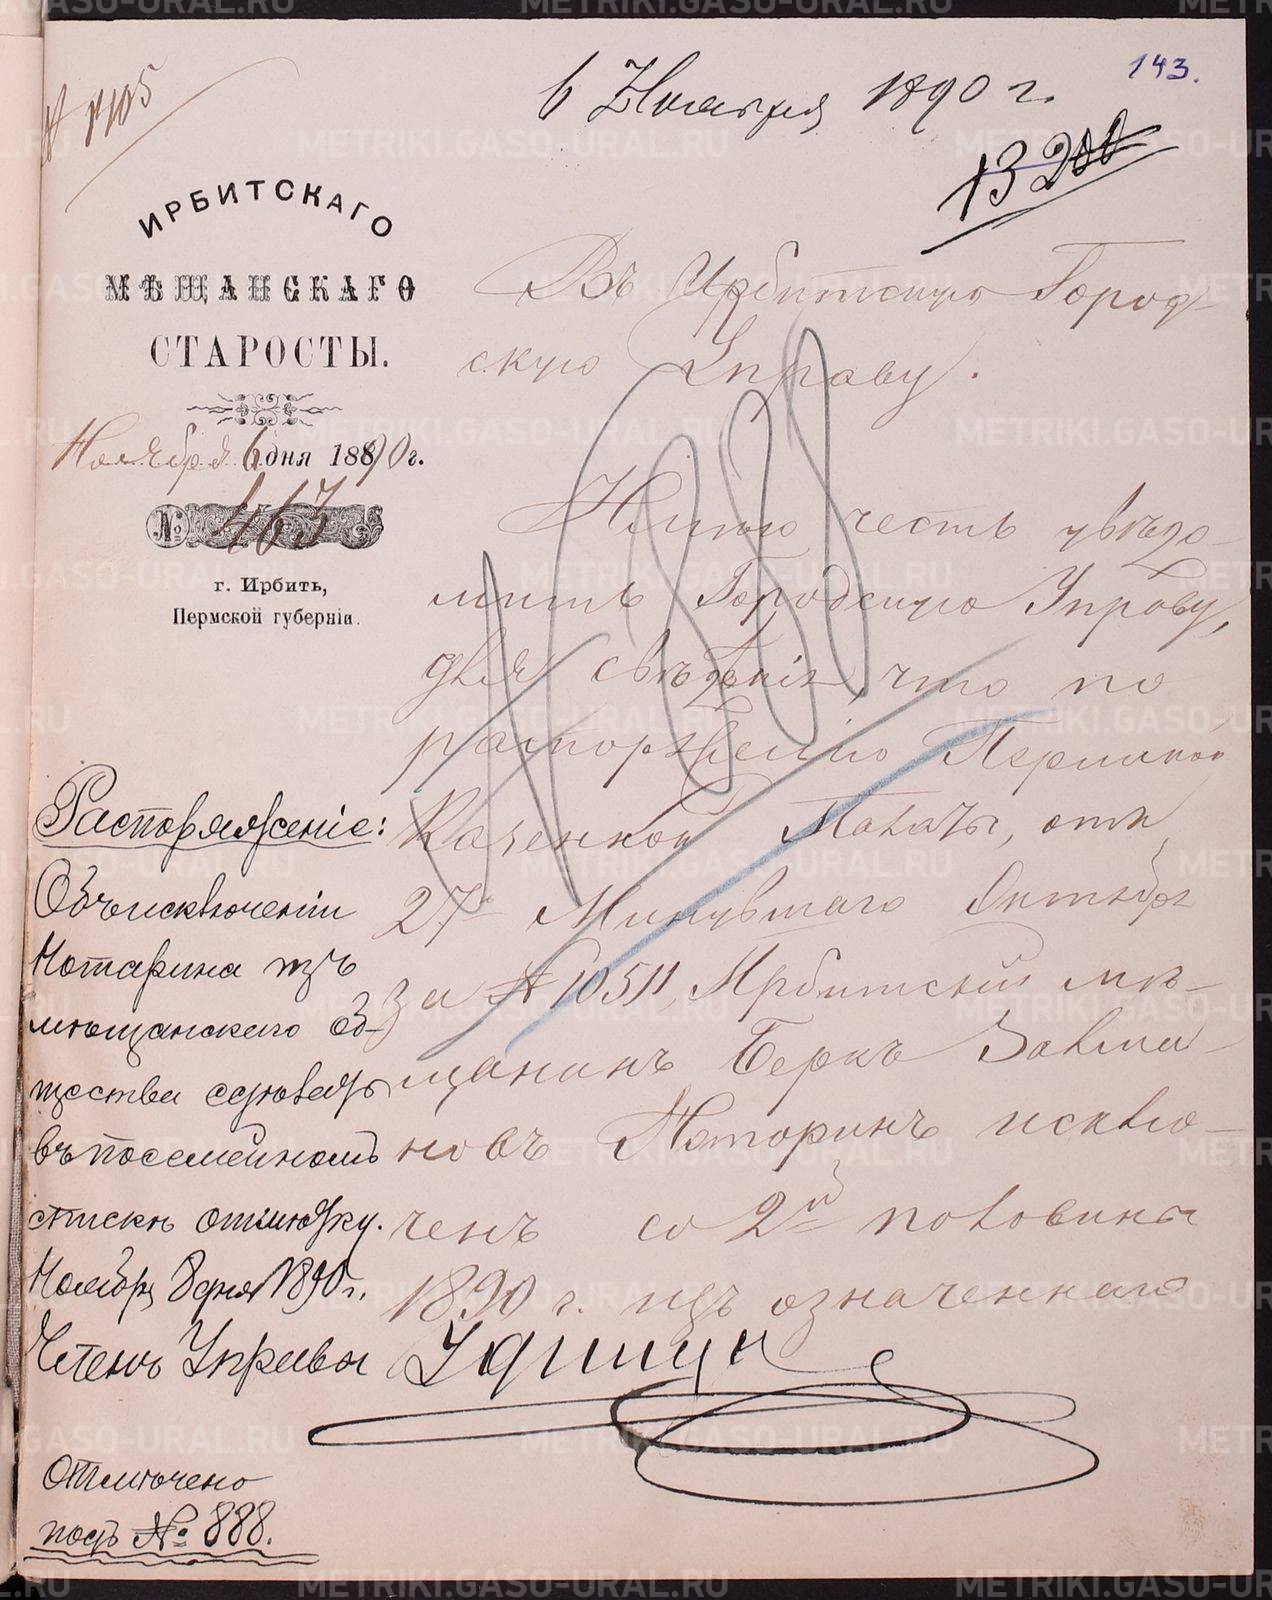 143.
6 Ноября 1890 г.
№ 4105
13200
ИРБИТСКАГО
МѢЩАНСКАГО
СТАРОСТЫ.
Ноября 6 дня 1890 г.
№ 463
г. Ирбить,
Пермской губерніи.
Въ Ирбитскую Город-
скую Управу.
Имѣю честь увѣдо-
мить Городскую Управу,
для свѣдѣнія, что по
распоряженію Пермской
Казенной Палаты, отъ
27 Минувшаго Октября
за № 10511, Ирбитскій мѣ-
щанинъ Беркъ Залма-
новъ Наторинъ исклю-
ченъ со 2й половины
1890 г. изъ означеннаго
№ 888
Распоряженіе:
Объ исключеніи
Наторина изъ
мѣщанскаго об-
щества сдѣлать
въ посемейномъ
спискѣ отмѣтку.
Ноября 8 дня 1890 г.
Членъ Управы
Отмѣчено
подъ № 888.
METRIKI.GASO-URAL.RU